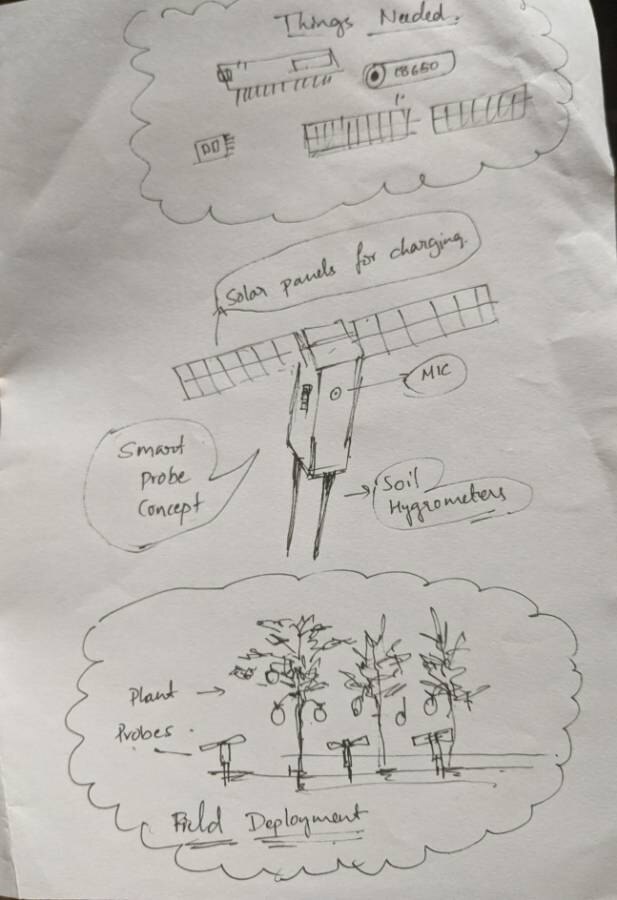 Things Needed.
18650
Solar panels for charging.
MIC
Smart
Probe
Concept
Soil
Hygrometers
Plant
Probes.
Field Deployment